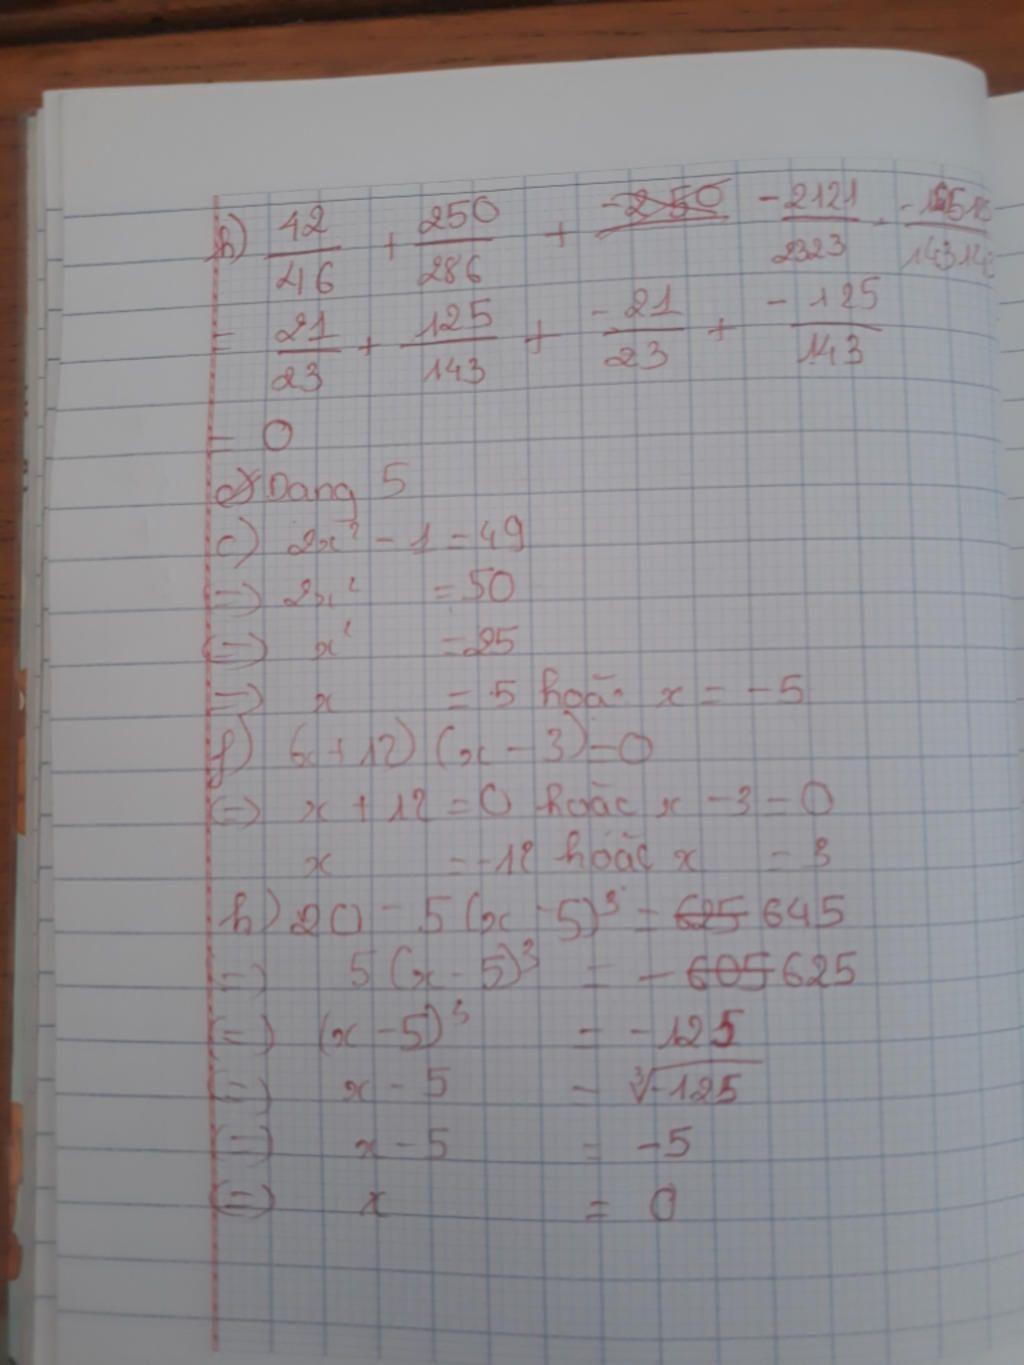 h) 42/46 + 250/286 + -2121/2323 +
= 21/23 + 125/143 + -21/23 + -125/143
= 0
Dạng 5
c) 2x² - 1 = 49
=> 2x² = 50
(=) x² = 25
=> x = 5 hoặc x = -5
f) (x + 12) (x - 3) = 0
(=) x + 12 = 0 hoặc x - 3 = 0
x = -12 hoặc x = 3
h) 20 - 5(x - 5)³ = 645
=) 5(x - 5)³ = -625
(=) (x - 5)³ = -125
=) x - 5 = ³√-125
(=) x - 5 = -5
(=) x = 0